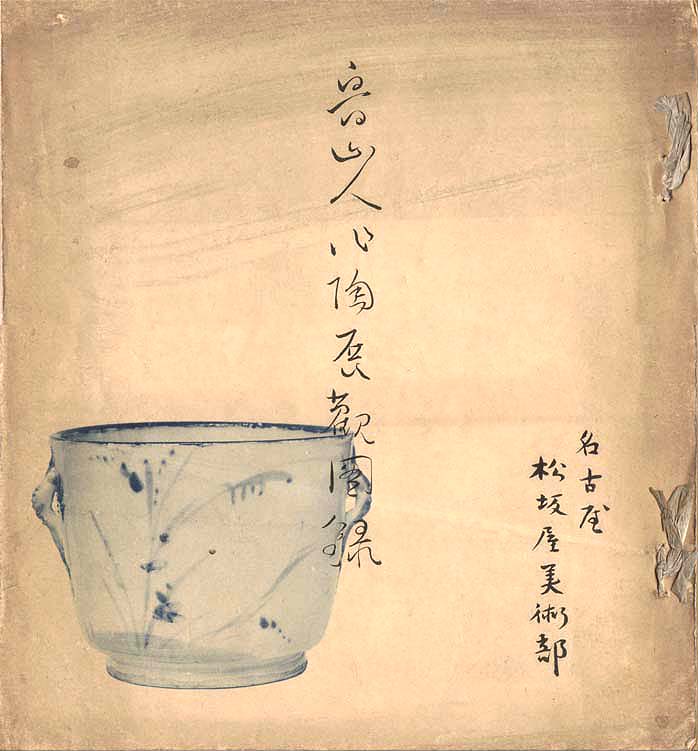 魯山人作陶展観図録
名古屋
松坂屋美術部